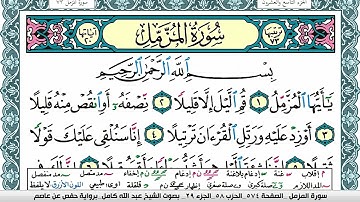 سُورَةُ المُزَّمِّلِ
بِسْمِ ٱللَّهِ ٱلرَّحْمَٰنِ ٱلرَّحِيمِ
يَٰٓأَيُّهَا ٱلْمُزَّمِّلُ ١ قُمِ ٱلَّيْلَ إِلَّا قَلِيلًا ٢ نِّصْفَهُۥٓ أَوِ ٱنقُصْ مِنْهُ قَلِيلًا
٣ أَوْ زِدْ عَلَيْهِ وَرَتِّلِ ٱلْقُرْءَانَ تَرْتِيلًا ٤ إِنَّا سَنُلْقِى عَلَيْكَ قَوْلًا
سورة المزمل الصفحة ٥٧٤ الحزب ٥٨ الجزء ٢٩ بصوت الشيخ عبد الله كامل برواية حفص عن عاصم